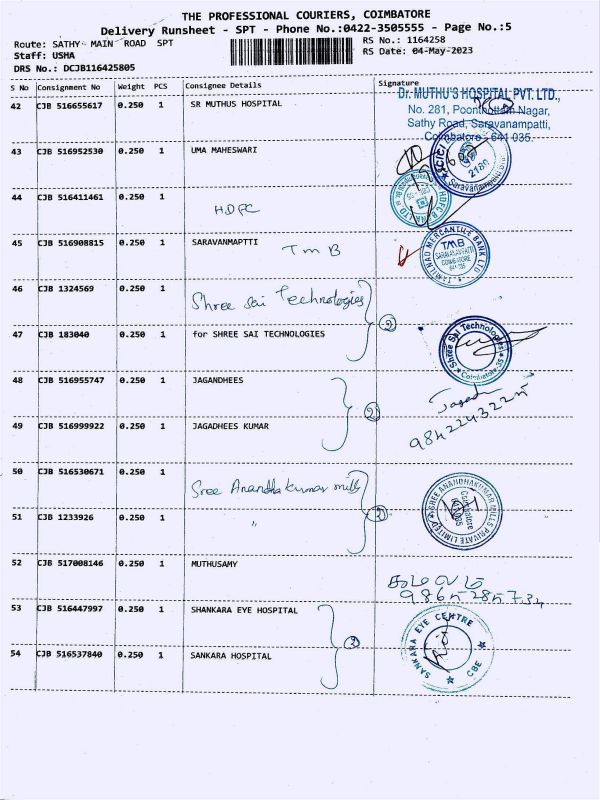 THE PROFESSIONAL COURIERS, COIMBATORE
Delivery Runsheet - SPT - Phone No.:0422-3505555 - Page No.:5
Route: SATHY MAIN ROAD SPT
RS No.: 1164258
Staff: USHA
RS Date: 04-May-2023
DRS No.: DCJB116425805
S No Consignment No Weight PCS Consignee Details Signature
42 CJB 516655617 0.250 1 SR MUTHUS HOSPITAL
Dr. MUTHU'S HOSPITAL PVT. LTD.,
No. 281, Poonthottam Nagar,
Sathy Road, Saravanampatti,
Coimbatore - 641 035.
43 CJB 516952530 0.250 1 UMA MAHESWARI
ICICI
2180
44 CJB 516411461 0.250 1
HDFC
45 CJB 516908815 0.250 1 SARAVANMAPTTI
TMB
TAMILNAD MERCANTILE BANK LTD
TMB
SARAVANAMPATTI
COIMBATORE
641 035
46 CJB 1324569 0.250 1 Shree Sai Technologies
2
47 CJB 183040 0.250 1 for SHREE SAI TECHNOLOGIES
Shree Sai Technologies
Coimbatore-35
48 CJB 516955747 0.250 1 JAGANDHEES
2
Jagadh
9842243225
49 CJB 516999922 0.250 1 JAGADHEES KUMAR
50 CJB 516530671 0.250 1 Sree Anandhakumar mills
2
SREE ANANDHAKUMAR MILLS PRIVATE LIMITED
Coimbatore
51 CJB 1233926 0.250 1 "
52 CJB 517008146 0.250 1 MUTHUSAMY
9865285734
53 CJB 516447997 0.250 1 SHANKARA EYE HOSPITAL
2
SANKARA EYE CENTRE
CBE
54 CJB 516537840 0.250 1 SANKARA HOSPITAL